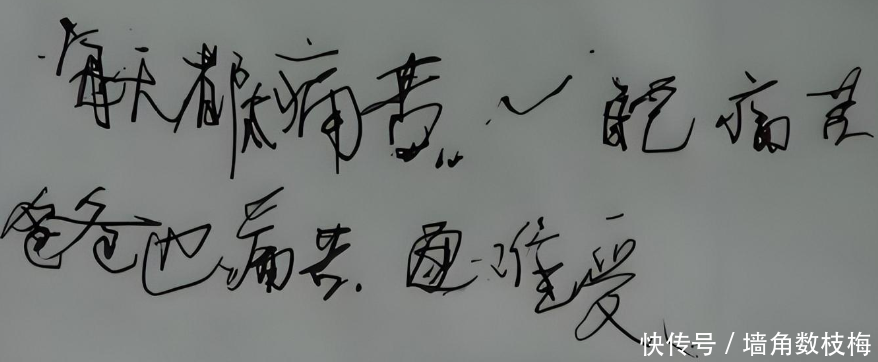 每天都太痛苦。自己痛苦
爸爸也痛苦.难受、
快传号/墙角数枝梅